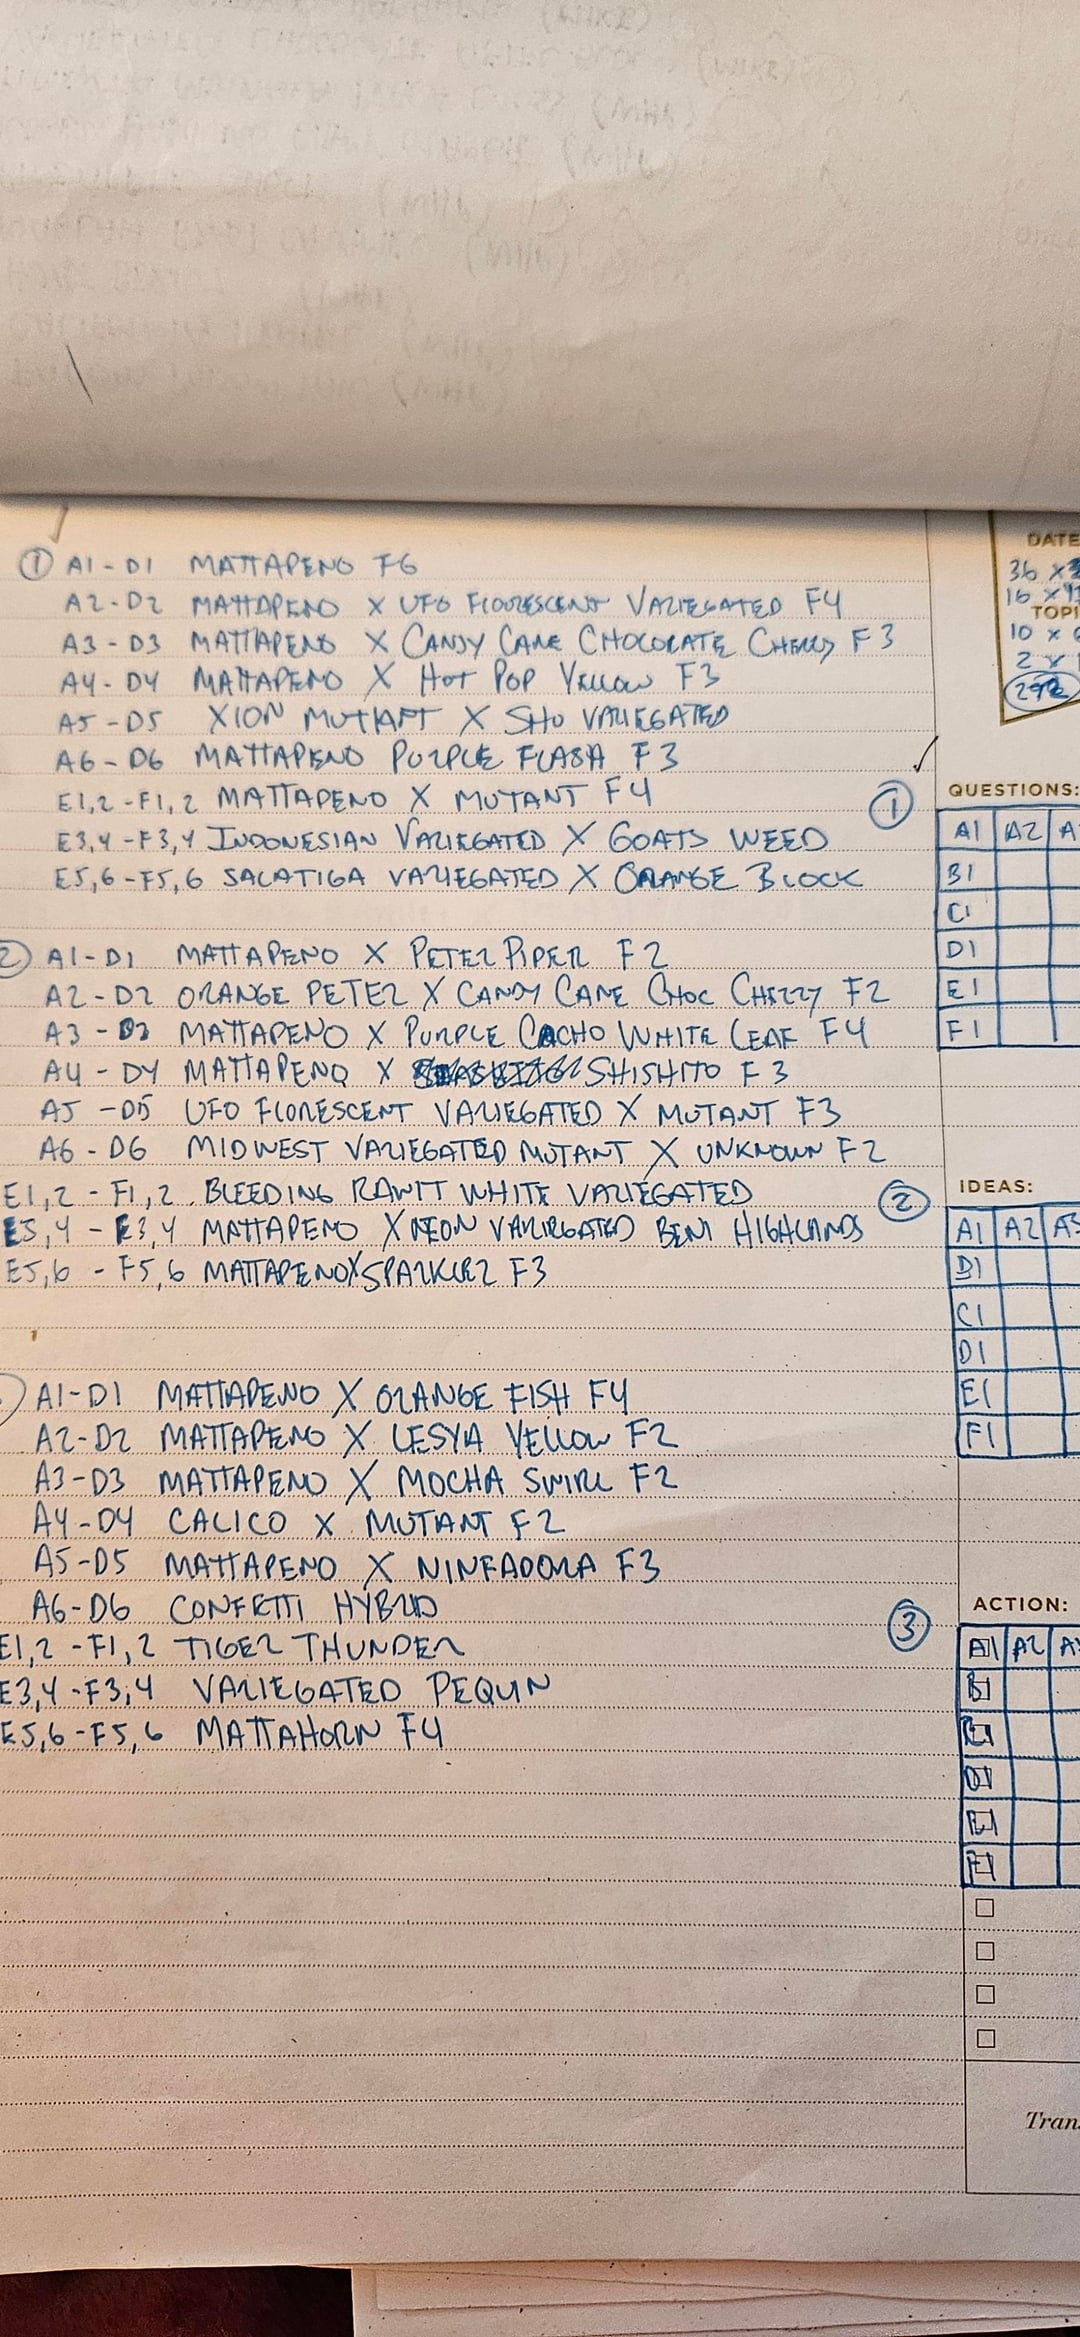 ① A1-D1 MATTAPENO F6
A2-D2 MATTAPENO X UFO FLOURESCENT VARIEGATED F4
A3-D3 MATTAPENO X CANDY CANE CHOCOLATE CHERRY F3
A4-D4 MATTAPENO X HOT POP YELLOW F3
A5-D5 XION MUTANT X SHU VARIEGATED
A6-D6 MATTAPENO PURPLE FLASH F3
E1,2-F1,2 MATTAPENO X MUTANT F4
E3,4-F3,4 INDONESIAN VARIEGATED X GOATS WEED
E5,6-F5,6 SALATIGA VARIEGATED X ORANGE BLOCK
② A1-D1 MATTAPENO X PETER PIPER F2
A2-D2 ORANGE PETER X CANDY CANE CHOC CHERRY F2
A3-D3 MATTAPENO X PURPLE CACHO WHITE LEAF F4
A4-D4 MATTAPENO X SHISHITO F3
A5-D5 UFO FLORESCENT VARIEGATED X MUTANT F3
A6-D6 MIDWEST VARIEGATED MUTANT X UNKNOWN F2
E1,2-F1,2 BLEEDING RAWIT WHITE VARIEGATED
E3,4-F3,4 MATTAPENO X NEON VARIEGATED BENI HIGHLANDS
E5,6-F5,6 MATTAPENO X SPARKLER F3
A1-D1 MATTAPENO X ORANGE FISH F4
A2-D2 MATTAPENO X LESYA YELLOW F2
A3-D3 MATTAPENO X MOCHA SWIRL F2
A4-D4 CALICO X MUTANT F2
A5-D5 MATTAPENO X NINFADORA F3
A6-D6 CONFETTI HYBRID
E1,2-F1,2 TIGER THUNDER
E3,4-F3,4 VARIEGATED PEQUIN
E5,6-F5,6 MATTAHORN F4
DATE
36 X
16 X
TOPI
10 X
2 X
292
QUESTIONS:
①
A1 A2 A
B1
C1
D1
E1
F1
IDEAS:
②
A1 A2 A3
B1
C1
D1
E1
F1
ACTION:
③
A1 A2 A
B1
C1
D1
E1
F1
Tran